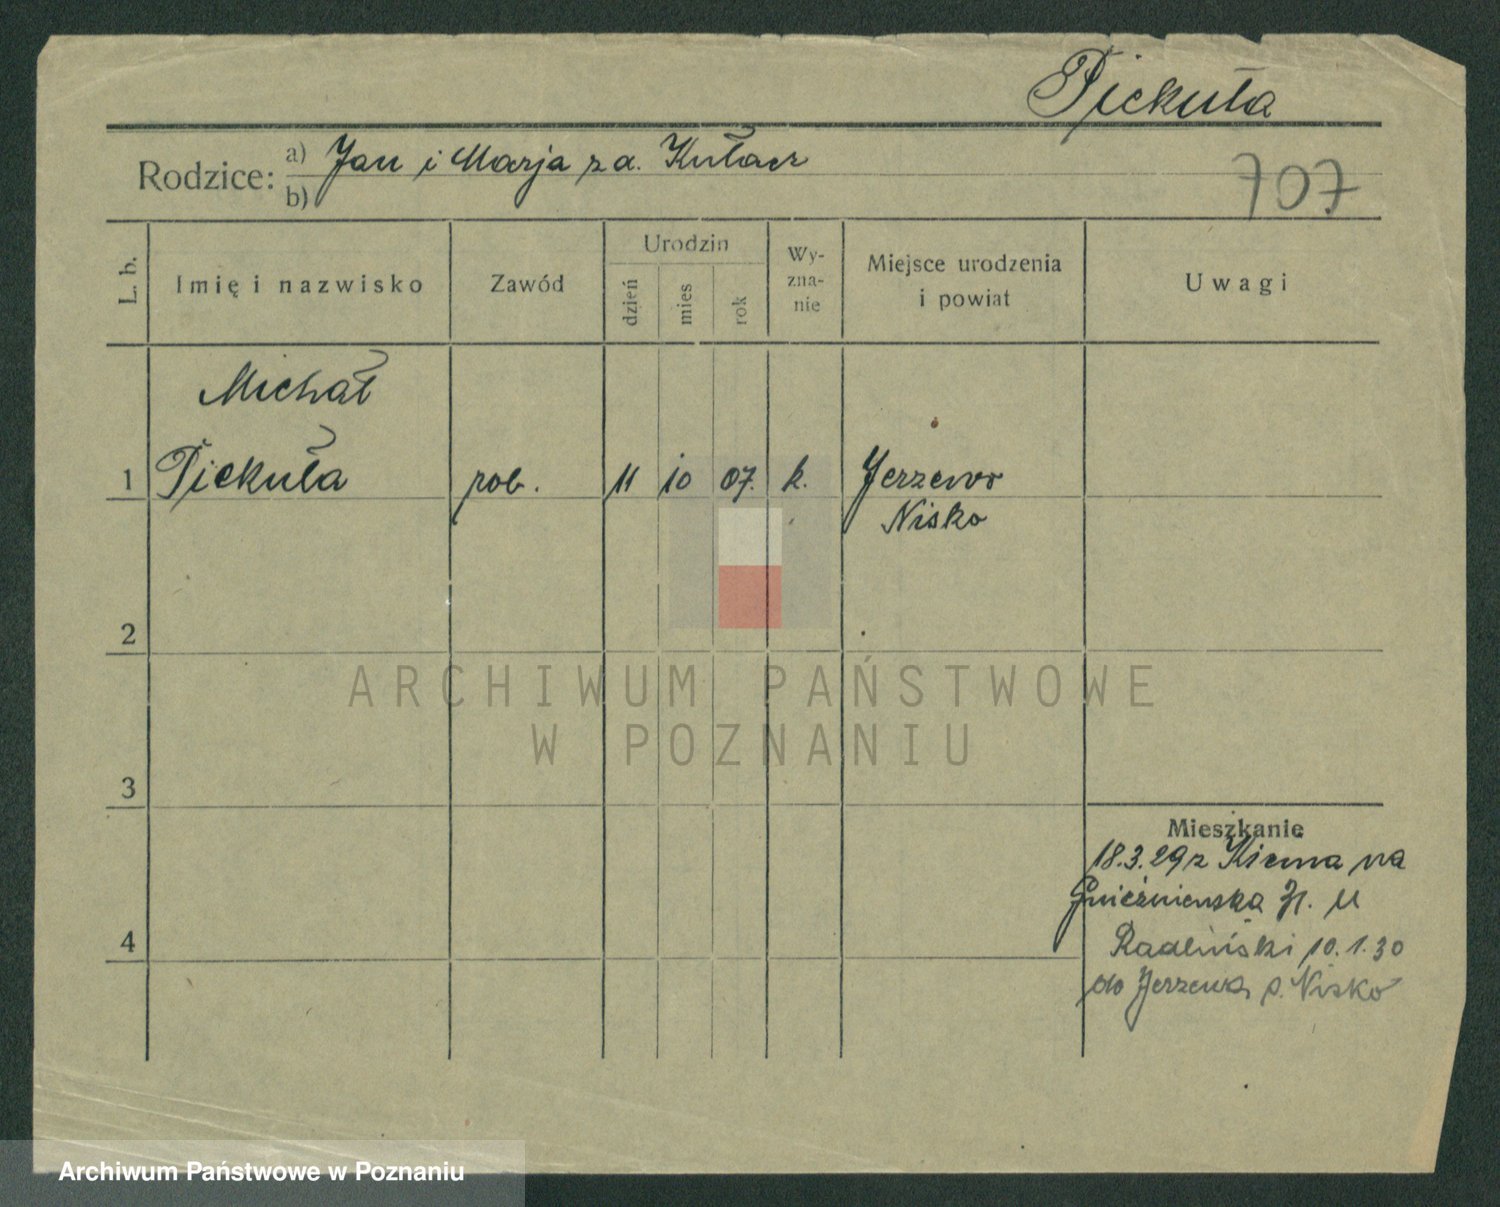 Piekuła
Rodzice: a) Jan i Marja z d. Kułacz
b)
707
L. b.
Imię i nazwisko
Zawód
Urodzin
dzień
mies
rok
Wy-
zna-
nie
Miejsce urodzenia
i powiat
Uwagi
Michał
1 Piekuła rob. 11 10 07. k. Jerzewo
Nisko
2
ARCHIWUM PAŃSTWOWE
W POZNANIU
3
Mieszkanie
18.3.29 z na
Gnieźnieńska
4
Radliński 10.1.30
do Jerzewa p. Nisko
Archiwum Państwowe w Poznaniu